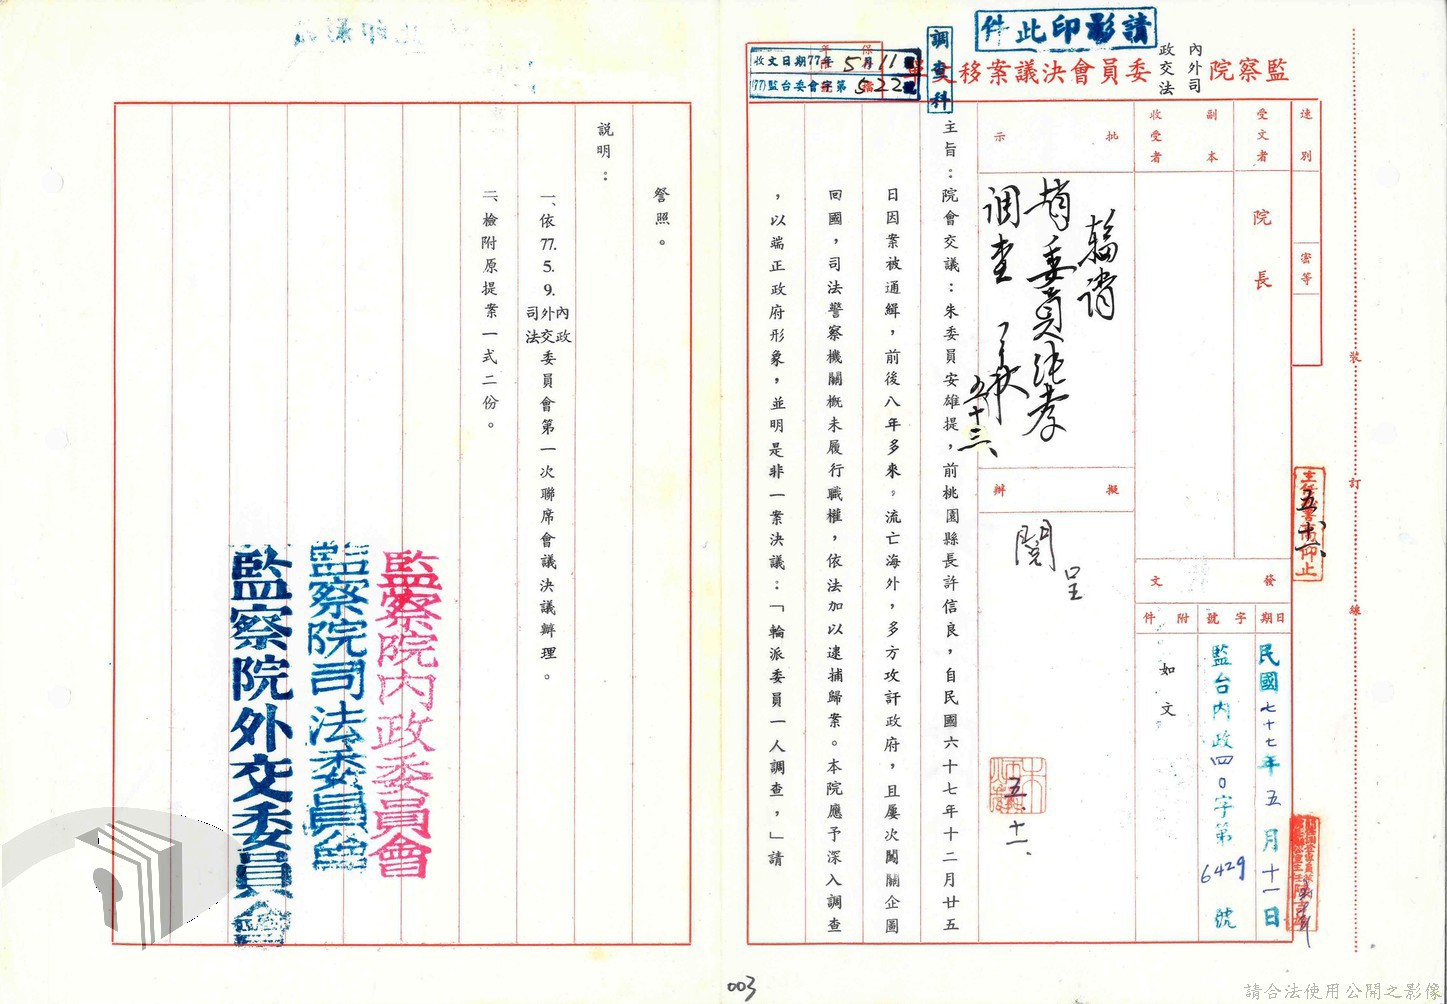 請影印此件
調查科
監察院內政外交司法委員會決議案移文單
保存年限
收文日期77年5月11
(77)監台委會字第522號
速別
密等
受文者
院長
副本
收受者
發文
日期
民國七十七年五月十一日
字號
監台內政四0字第6429號
附件
如文
批示
輪請
趙委員純孝
調查
五十三、
擬辦
呈
閱
五、十一、
主旨：院會交議：朱委員安雄提，前桃園縣長許信良，自民國六十七年十二月廿五
日因案被通緝，前後八年多來。流亡海外，多方攻訐政府，且屢次闖關企圖
回國，司法警察機關概未履行職權，依法加以逮捕歸案。本院應予深入調查
，以端正政府形象，並明是非一案決議：「輪派委員一人調查，」請
詧照。
說明：
一、依77.5.9.內政外交司法委員會第一次聯席會議決議辦理。
二、檢附原提案一式二份。
監察院內政委員會
監察院司法委員會
監察院外交委員會
裝
訂
線
003
請合法使用公開之影像